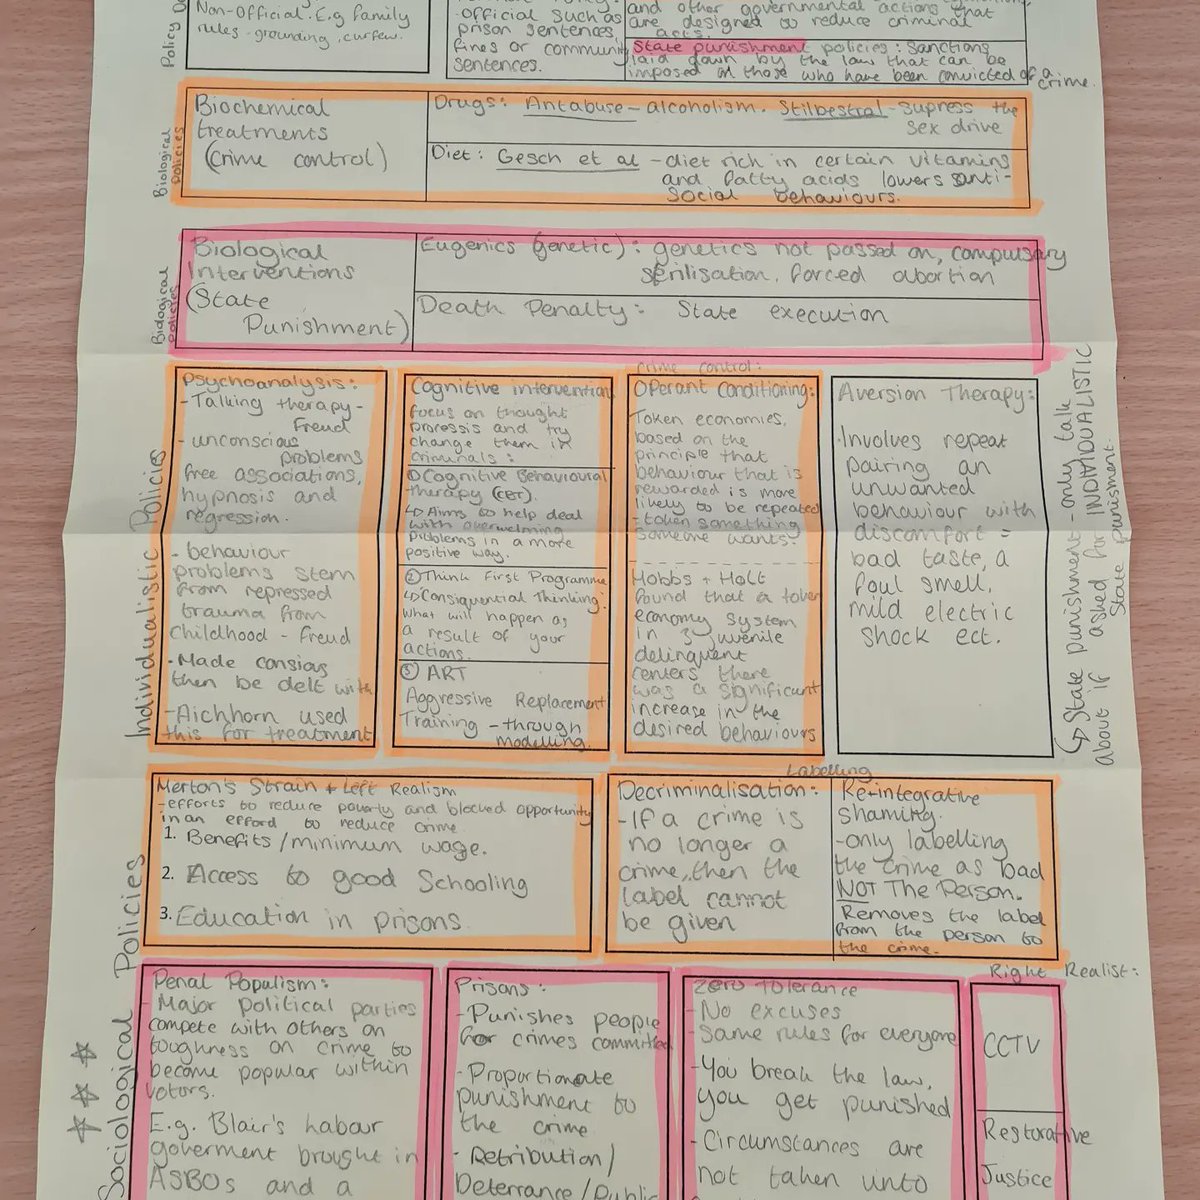 Policy
Non-Official. E.g family
rules - grounding, curfew.
official such as
prison sentences,
fines or community
sentences.
and other governmental actions that
are designed to reduce criminal
acts.
State punishment policies: Sanctions
laid down by the law that can be
imposed on those who have been convicted of a
crime.
Biological
Policies
Biochemical
treatments
(crime control)
Drugs: Antabuse - alcoholism. Stilbestral - supress the
sex drive
Diet: Gesch et al - diet rich in certain vitamins
and fatty acids lowers anti-
social behaviours.
Biological
Policies
Biological
Interventions
(State
Punishment)
Eugenics (genetic): genetics not passed on, compulsary
sterilisation, forced abortion
Death Penalty: State execution
Individualistic Policies
Psychoanalysis:
-Talking therapy-
Freud
- unconscious
problems
free associations,
hypnosis and
regression.
- behaviour
problems stem
from repressed
trauma from
childhood - Freud
·Made consious
then be delt with
-Aichhorn used
this for treatment
Cognitive intervention
focus on thought
processis and try
change them in
criminals:
① Cognitive Behavioural
therapy (CBT).
↳ Aims to help deal
with overwelming
problems in a more
positive way.
② Think First Programme
↳ Consiquential Thinking:
what will happen as
a result of your
actions.
③ ART
Aggressive Replacement
Training - through
modelling.
crime control:
Operant Conditioning:
Token economies,
based on the
principle that
behaviour that is
rewarded is more
likely to be repeated
- token something
someone wants.
Hobbs + Holt
found that a token
economy system
in 3 juvenile
delinquent
centers there
was a significant
increase in the
desired behaviours
Aversion Therapy:
·Involves repeat
pairing an
unwanted
behaviour with
discomfort =
bad taste, a
foul smell,
mild electric
shock ect.
↳ State punishment - only talk
about if asked for INDIVIDUALISTIC
State punishment.
Sociological Policies
Merton's Strain + Left Realism
-efforts to reduce poverty and blocked opportunity
in an effort to reduce crime
1. Benefits/minimum wage.
2. Access to good Schooling
3. Education in prisons.
Labelling
Decriminalisation:
-If a crime is
no longer a
crime, then the
label cannot
be given
Re-integrative
shaming.
-only labelling
the crime as bad
NOT The Person.
Removes the label
from the person to
the crime.
Penal Populism:
- Major political parties
compete with others on
toughness on crime to
become popular within
votors.
E.g. Blair's labour
goverment brought in
ASBOs and a
Prisons:
- Punishes people
for crimes committed
-Proportionate
punishment to
the crime
- Retribution/
Deterrance/Public
Zero Tolerance
-No excuses
-Same rules for everyone
-You break the law,
you get punished
-Circumstances are
not taken unto
Right Realist:
CCTV
Restorative
Justice